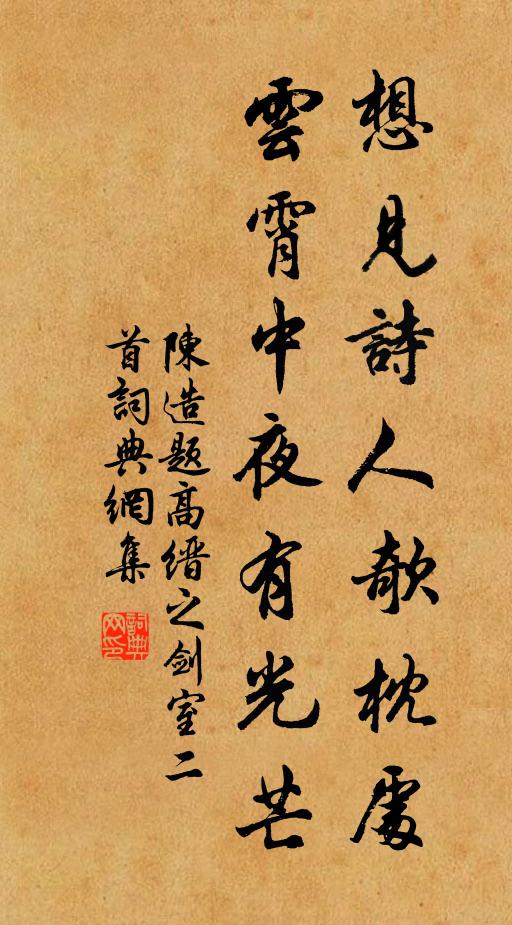 想見詩人欹枕處
雲霄中夜有光芒
陳造題高缙之劍室二
首詞典網集
詞典
网印